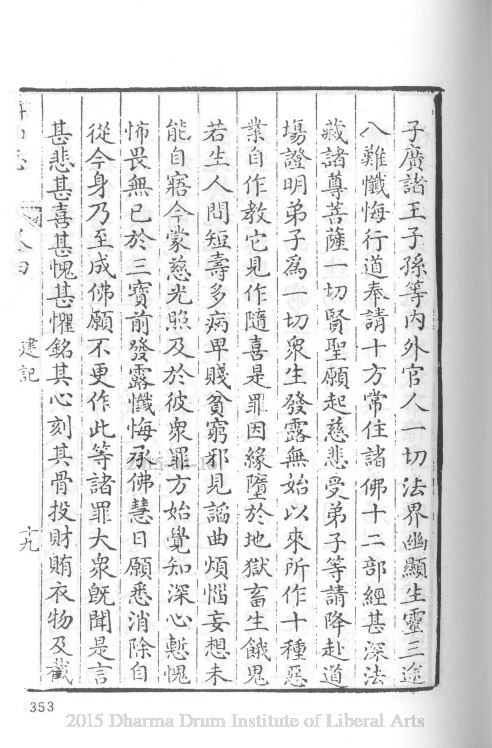 子廣諸王子孫等內外官人一切法界幽顯生靈三途
八難懺悔行道奉請十方常住諸佛十二部經甚深法
藏諸尊菩薩一切賢聖願起慈悲受弟子等請降赴道
場證明弟子為一切眾生發露無始以來所作十種惡
業自作教它見作隨喜是罪因緣墮於地獄畜生餓鬼
若生人間短壽多病卑賤貧窮邪見諂曲煩惱妄想未
能自寤今蒙慈光照及於彼眾罪方始覺知深心慙愧
怖畏無已於三寶前發露懺悔承佛慧日願悉消除自
從今身乃至成佛願不更作此等諸罪大眾既聞是言
甚悲甚喜甚愧甚懼銘其心刻其骨投財賄衣物及截
建記
十九
353
2015 Dharma Drum Institute of Liberal Arts